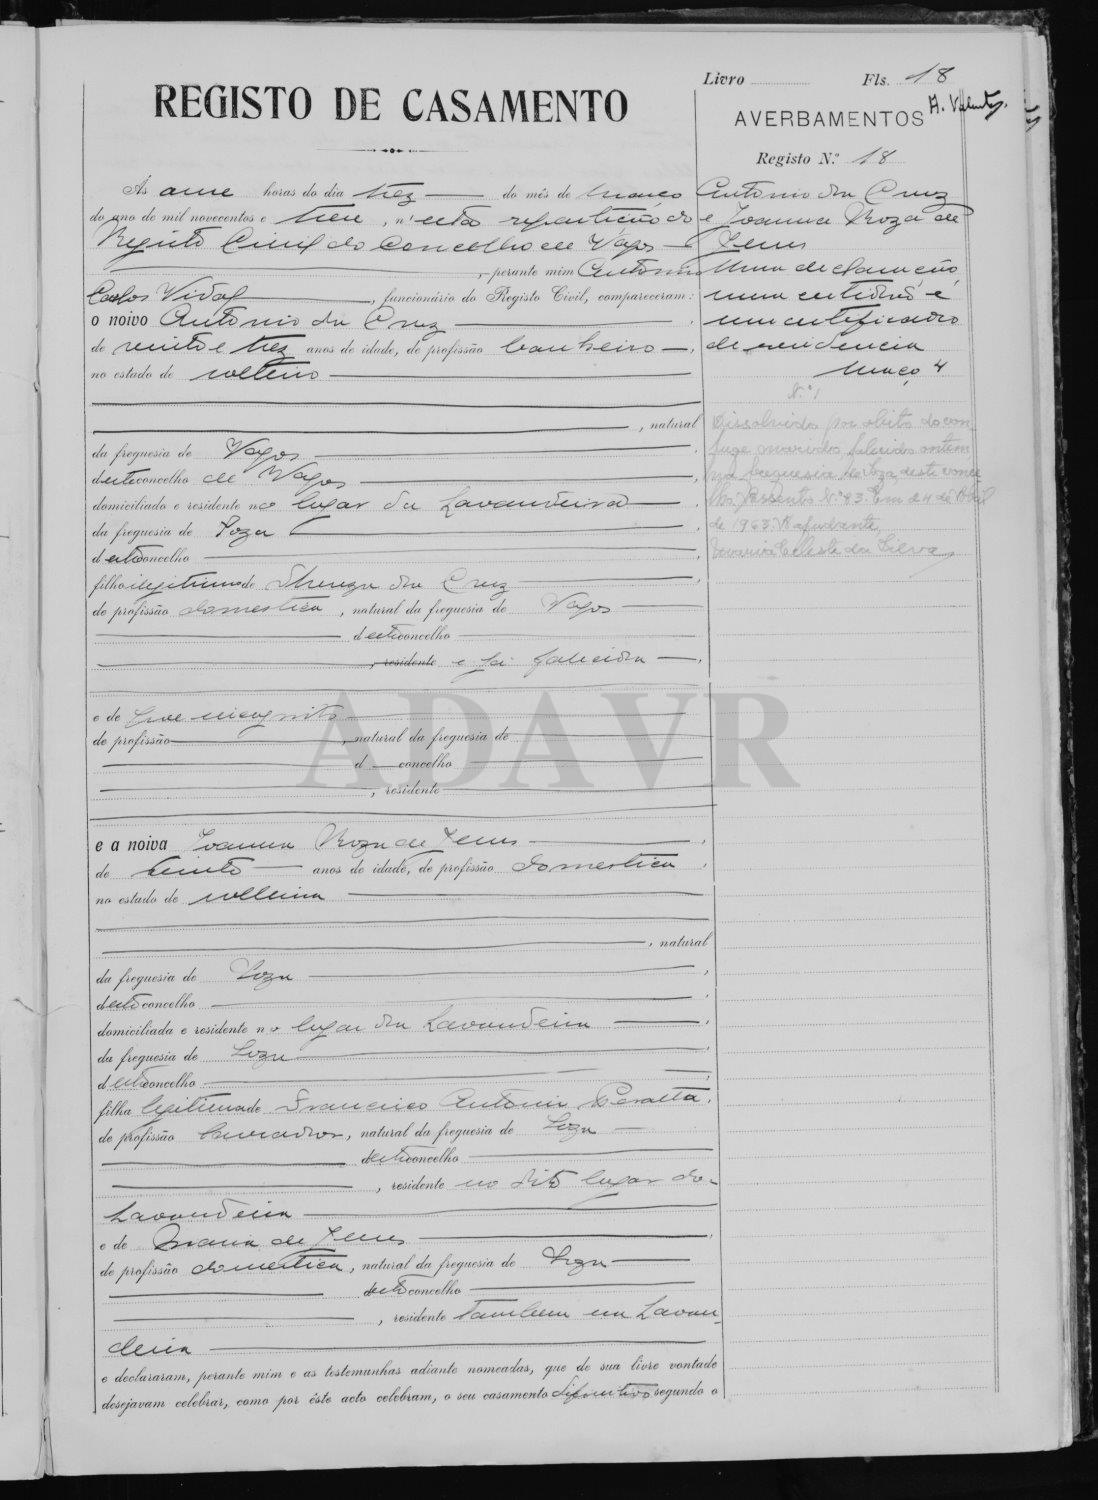 Livro Fls. 18
REGISTO DE CASAMENTO
AVERBAMENTOS
Registo N.º 18
Ás onze horas do dia trez do mês de Março
do ano de mil novecentos e treze, n'esta repartição do
Registo Civil do Concelho de Vagos
, perante mim Antonio
Carlos Vidal, funcionário do Registo Civil, compareceram:
o noivo Antonio da Cruz
de vinte e trez anos de idade, de profissão
no estado de solteiro
, natural
da freguesia de Vagos
deste concelho de Vagos
domiciliado e residente no lugar da Lavandeira
da freguesia de Soza
deste concelho
filho ilegitimo de da Cruz
de profissão domestica, natural da freguesia de Vagos
deste concelho
, residente e já falecida
e de pae incognito
de profissão , natural da freguesia de
d concelho
, residente
e a noiva Joanna Roza de Jesus
de vinte anos de idade, de profissão domestica
no estado de solteira
, natural
da freguesia de Soza
deste concelho
domiciliada e residente no lugar da Lavandeira
da freguesia de Soza
deste concelho
filha legitima de Francisco Antonio Peralta,
de profissão lavrador, natural da freguesia de Soza
deste concelho
, residente no dito lugar da
Lavandeira
e de Maria de Jesus
de profissão domestica, natural da freguesia de Soza
deste concelho
, residente tambem em Lavan-
deira
e declararam, perante mim e as testemunhas adiante nomeadas, que de sua livre vontade
desejavam celebrar, como por êste acto celebram, o seu casamento definitivo segundo o
Antonio da Cruz
e Joanna Roza de
Jesus
Uma declaração
uma certidão e
um certificado
de residencia
Maço 4
N.º 1
Dissolvido por obito do con-
juge marido, falecido ontem
na freguesia de Soza deste conce-
lho. Assento N.º 43. Em 24 de Abril
de 1963. A ajudante,
Maria Celeste da Silva
ADAVR